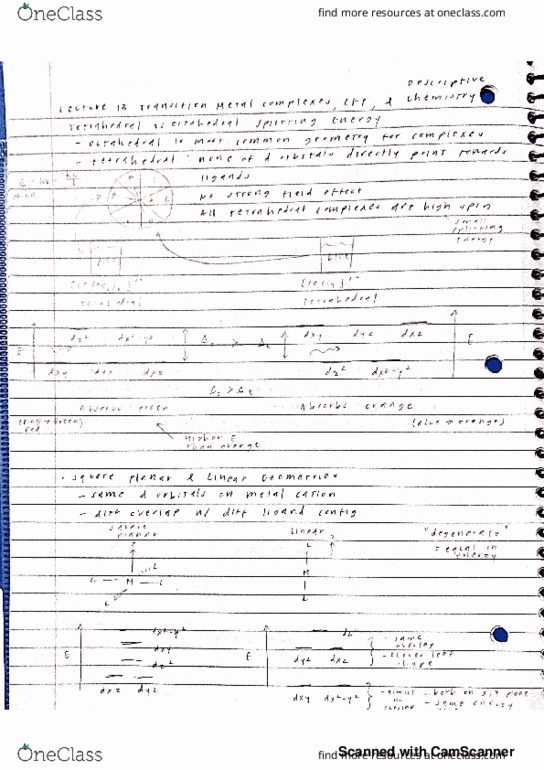 OneClass
find more resources at oneclass.com
Descriptive
Lecture 13 Transition Metal complexes, CFT, & Chemistry
Tetrahedral vs octahedral splitting Energy
- octahedral is most common geometry for complexes
- tetrahedral : none of d orbitals directly point towards
ligands
No strong field effect
All tetrahedral complexes are high spin
small
splitting
energy
Tetrahedral
E dz² dx²-y² Δo > Δt dxy dyz dxz E
dxy dxz dyz dz² dx²-y²
Δo > Δt
Absorbs green Absorbs orange
red (blue → orange)
Higher E
than orange
· Square planar & Linear Geometries
- same d orbitals on metal cation
- diff overlap w/ diff ligand config
square
planar
Linear
"degenerate"
= equal in
energy
L
L M L M
L L
E dx²-y² E dz²
dxy
dz²
dyz dxz
- same
overlay
- clover leaf
shape
dxz dyz
dxy dx²-y²
- same energy
OneClass
find more resources at oneclass.com
Scanned with CamScanner